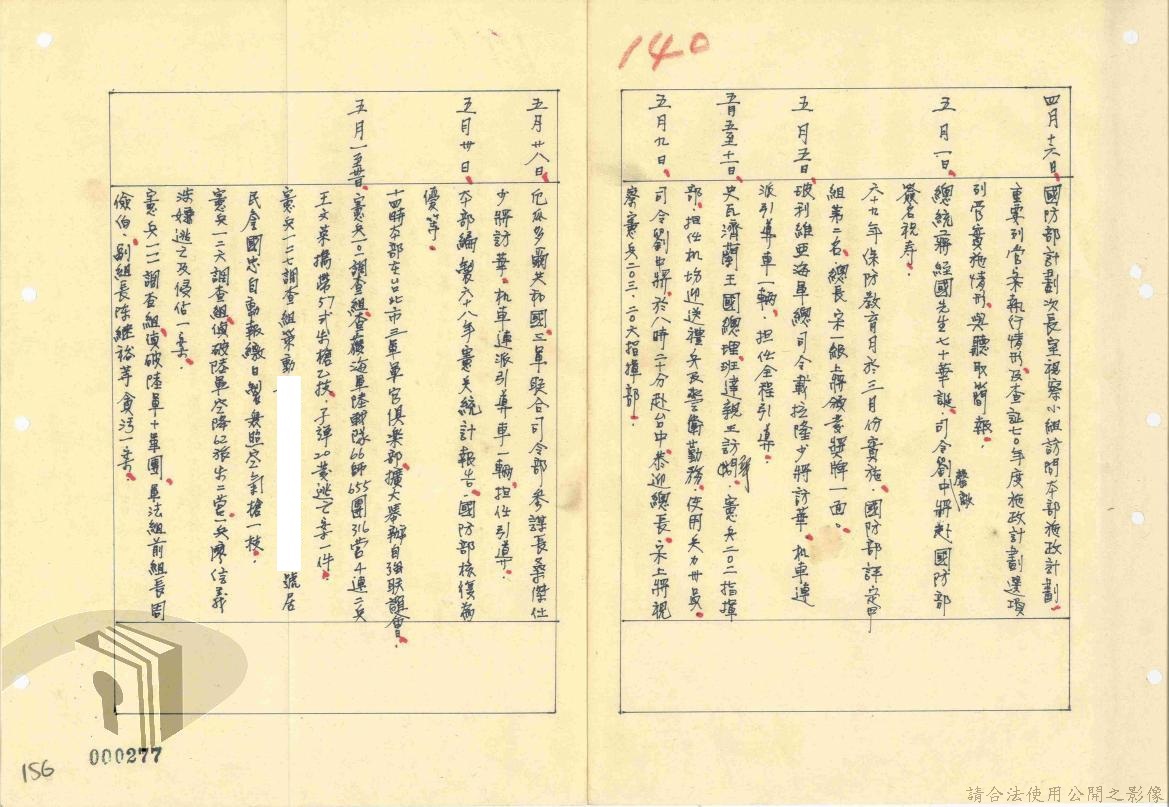 140
四月十六日
國防部計劃次長室視察小組訪問本部施政計劃
重要列管案執行情形及查証七〇年度施政計劃選項
列管實施情形與聽取簡報。
五月一日
總統蔣經國先生七十華誕、司令劉罄敵中將赴國防部
簽名祝壽。
六十九年保防教育月於三月份實施、國防部評定甲
組第二名、總長宋一級上將頒壹獎牌一面。
五月五日
玻利維亞海軍總司令戴拉隆少將訪華、机車連
派引導車一輛、担任全程引導。
五月五至十一日
史瓦濟蘭王國總理班達親王訪問、憲兵二〇二指揮
部、担任机場迎送禮兵及警衛勤務、使用兵力卅員
五月九日
司令劉中將、於八時二十分赴台中、恭迎總長、宋上將視
察憲兵二〇三、二〇六指揮部。
五月廿八日
厄瓜多爾共和國三軍聯合司令部參謀長桑傑仕
少將訪華、机車連派引導車一輛、担任引導。
五月卅日
本部編製六十八年憲兵統計報告、國防部核復為
優等。
十四時本部在台北市三軍軍官俱樂部擴大舉辦自強联誼會。
五月一至卅日
憲兵一〇一調查組查獲海軍陸戰隊66師655團316營4連二兵
王文萊攜帶57式步槍乙枝、子彈20發逃亡案一件。
憲兵一二七調查組策動
號居
民金國忠自動報繳日製無照空氣槍一枝。
憲兵一二六調查組偵破陸軍空降62旅步二營一兵廖信義
涉嫌逃亡及侵佔一案。
憲兵一一一調查組偵破陸軍十軍團、軍法組前組長周
儉伯、副組長陳繼裕等貪污一案。
000277
156
請合法使用公開之影像